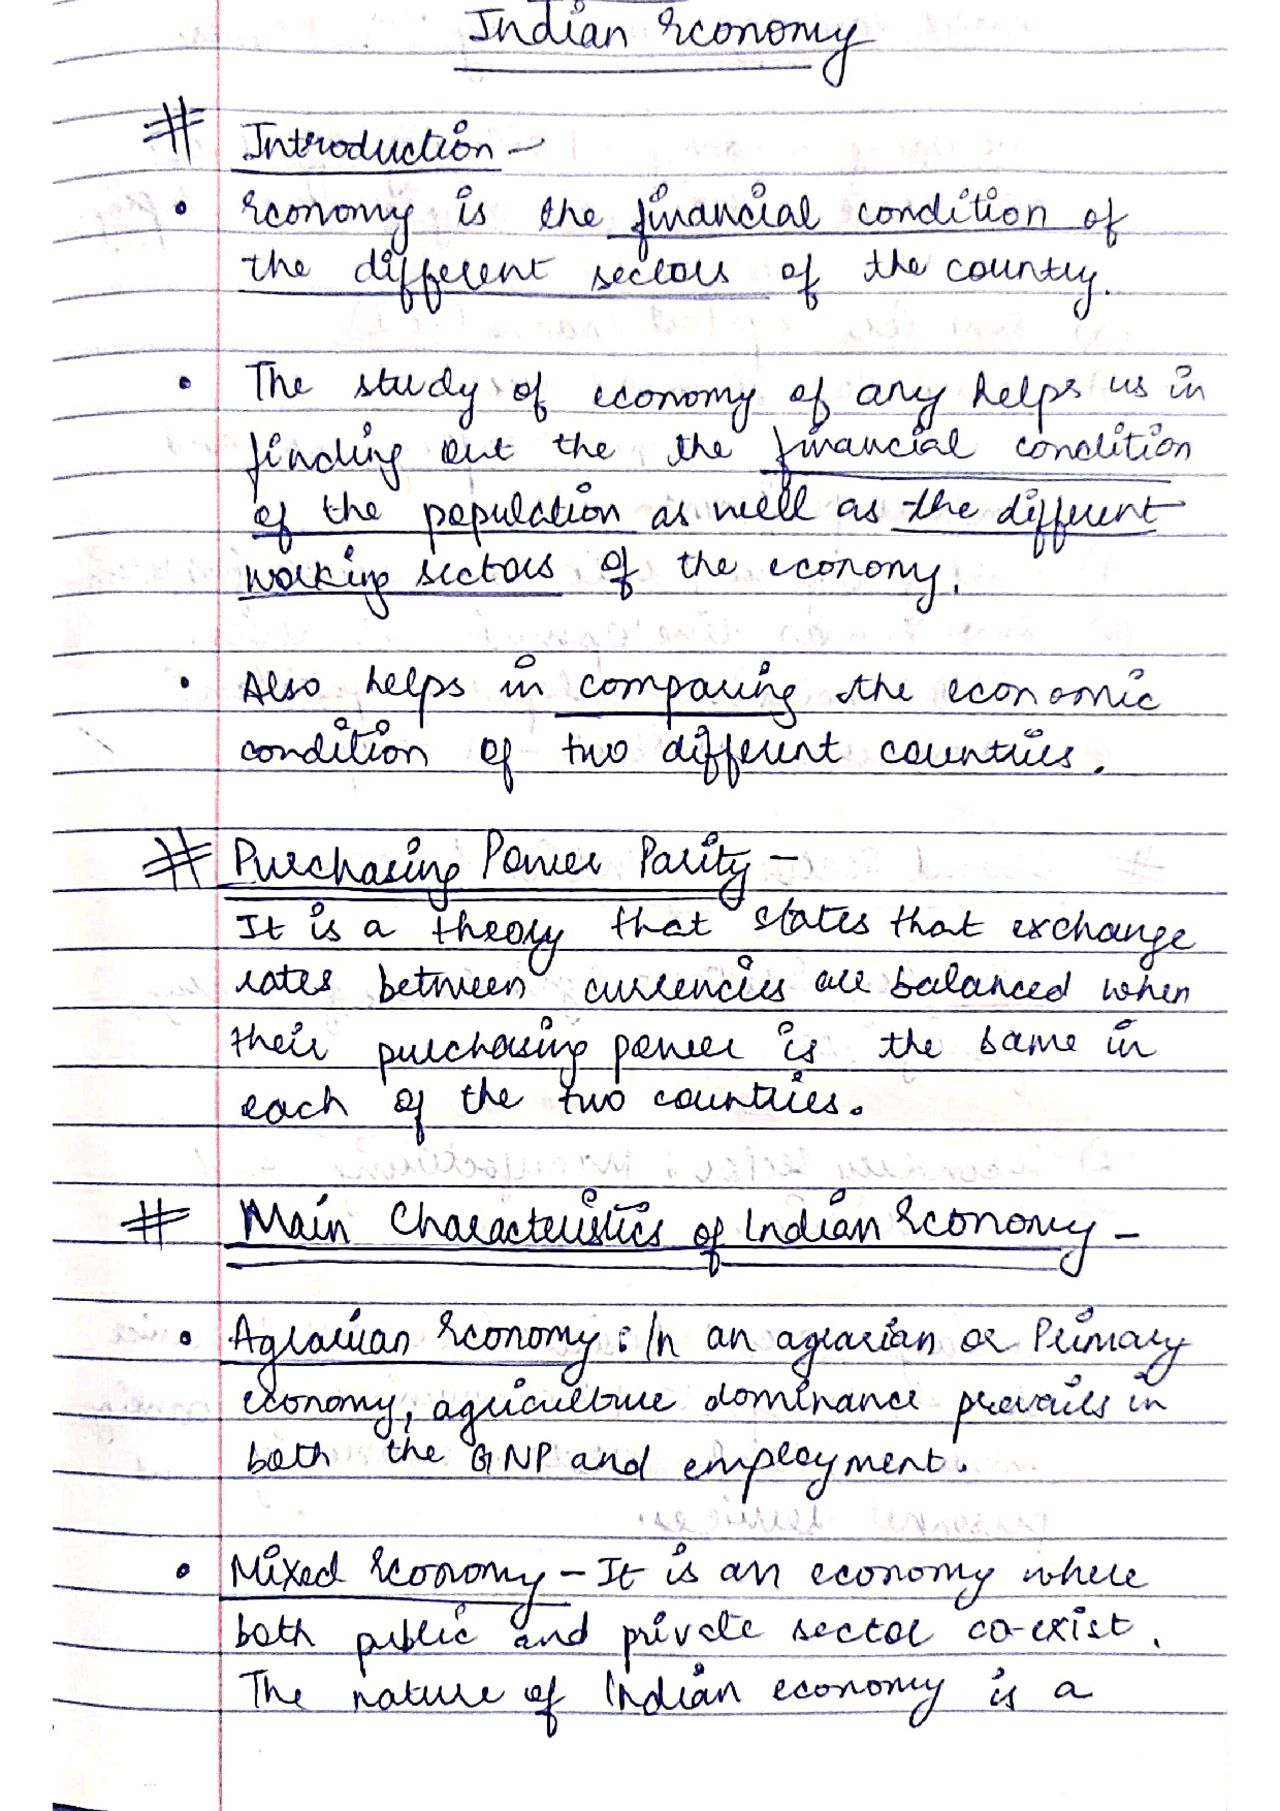 Indian Economy
# Introduction -
• Economy is the financial condition of
the different sectors of the country.
• The study of economy of any helps us in
finding out the the financial condition
of the population as well as the different
working sectors of the economy.
• Also helps in comparing the economic
condition of two different countries.
# Purchasing Power Parity -
It is a theory that states that exchange
rates between currencies are balanced when
their purchasing power is the same in
each of the two countries.
# Main Characteristics of Indian Economy -
• Agrarian Economy: In an agrarian or Primary
economy, agriculture dominance prevails in
both the GNP and employment.
• Mixed Economy - It is an economy where
both public and private sector co-exist.
The nature of Indian economy is a